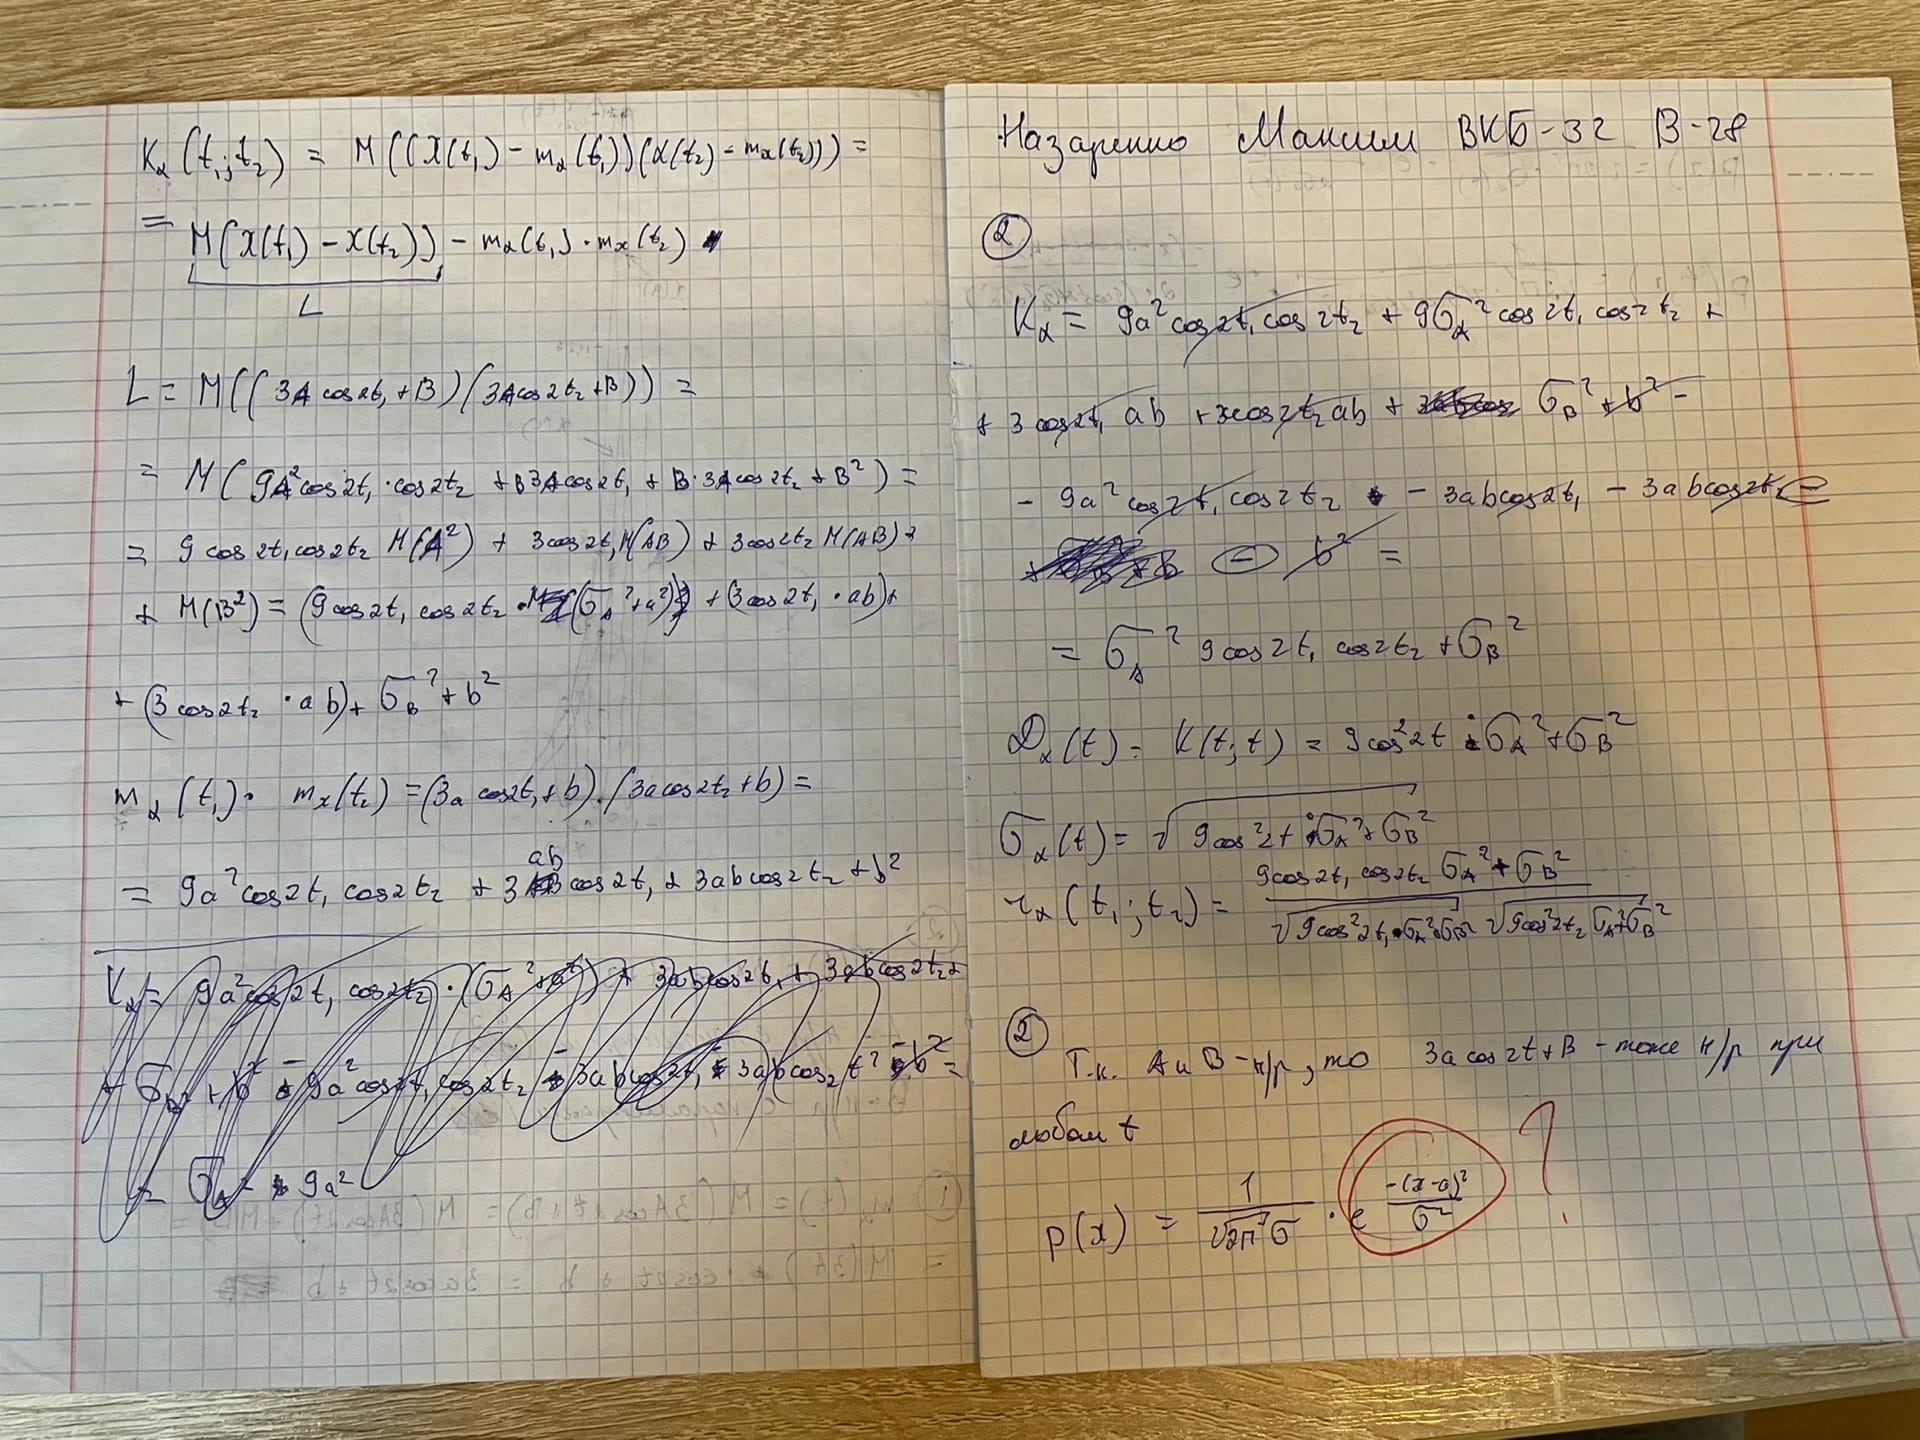 Kx(t₁;t₂) = M((X(t₁) - mx(t₁))(X(t₂) - mx(t₂))) =
= M(X(t₁) - X(t₂)) - mx(t₁) · mx(t₂)
L
L = M((3A cos2t₁ + B)(3A cos2t₂ + B)) =
= M(9A² cos2t₁ · cos2t₂ + B3A cos2t₁ + B·3A cos2t₂ + B²) =
= 9 cos2t₁ cos2t₂ M(A²) + 3cos2t₁ M(AB) + 3cos2t₂ M(AB) +
+ M(B²) = (9cos2t₁ cos2t₂ · (σA² + a²)) + (3cos2t₁ · ab) +
+ (3cos2t₂ · ab) + σB² + b²
mx(t₁) · mx(t₂) = (3a cos2t₁ + b) · (3a cos2t₂ + b) =
= 9a² cos2t₁ cos2t₂ + 3ab cos2t₁ + 3ab cos2t₂ + b²
Kx = 9a² cos2t₁ cos2t₂ · (σA² + a²) + 3ab cos2t₁ + 3ab cos2t₂ +
+ σB² + b² - 9a² cos2t₁ cos2t₂ - 3ab cos2t₁ - 3ab cos2t² - b² =
= σA - 9a²
Назаренко Максим ВКБ-32 В-28
②
Kx = 9a² cos2t₁ cos2t₂ + 9σA² cos2t₁ cos2t₂ +
+ 3cos2t₁ ab + 3cos2t₂ ab + σB² + b² -
- 9a² cos2t₁ cos2t₂ - 3ab cos2t₁ - 3ab cos2t₂ -
- b² =
= σA² 9cos2t₁ cos2t₂ + σB²
Dx(t) = K(t;t) = 9cos²2t · σA² + σB²
σx(t) = √(9cos²2t · σA² + σB²)
rx(t₁;t₂) = (9cos2t₁ cos2t₂ σA² + σB²) / (√(9cos²2t₁ · σA² + σB²) √(9cos²2t₂ σA² + σB²))
②
Т.к. A и B - н/р, то 3a cos2t + B - тоже н/р при
любом t
p(x) = 1/(√2π σ) · e^(-(x-a)²/σ²) ?